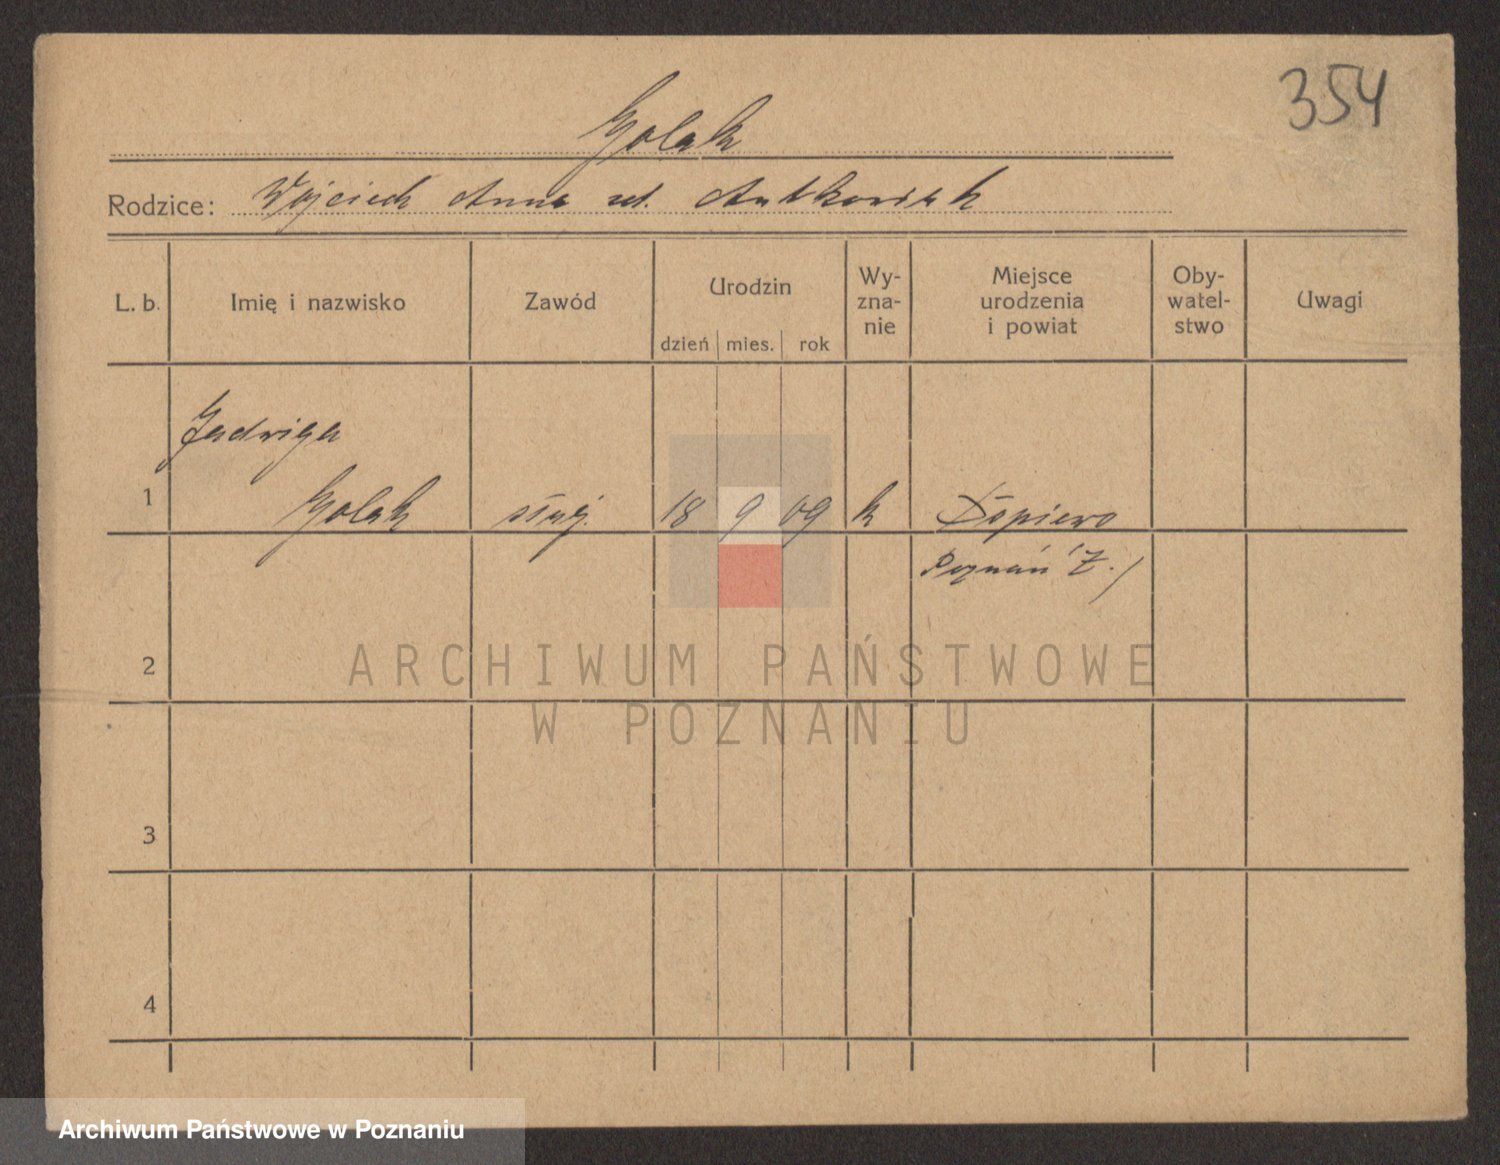 354
Golak
Rodzice: Wojciech Anna zd. Antkowiak
L. b. Imię i nazwisko Zawód Urodzin dzień mies. rok Wy-
zna-
nie Miejsce
urodzenia
i powiat Oby-
watel-
stwo Uwagi
Jadwiga
1 Golak służ. 18 9 09 k Dopiewo
Poznań Z.
2
ARCHIWUM PAŃSTWOWE
W POZNANIU
3
4
Archiwum Państwowe w Poznaniu